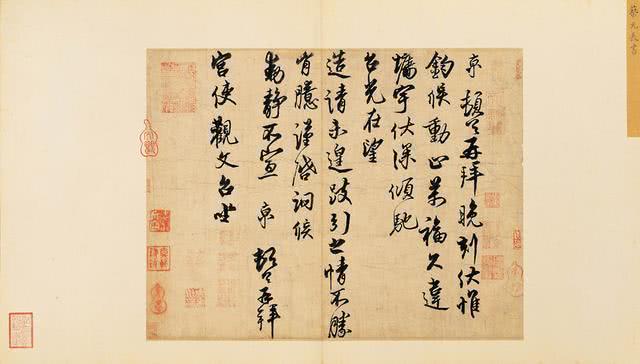 蔡元長書
京頓首再拜晚刻伏惟
鈞候動止萬福久違
牆宇伏深傾馳
台光在望
造請未遑跂引之情不勝
胷臆謹啓詞候
動静不宣 京 頓首再拜
宮使觀文台坐